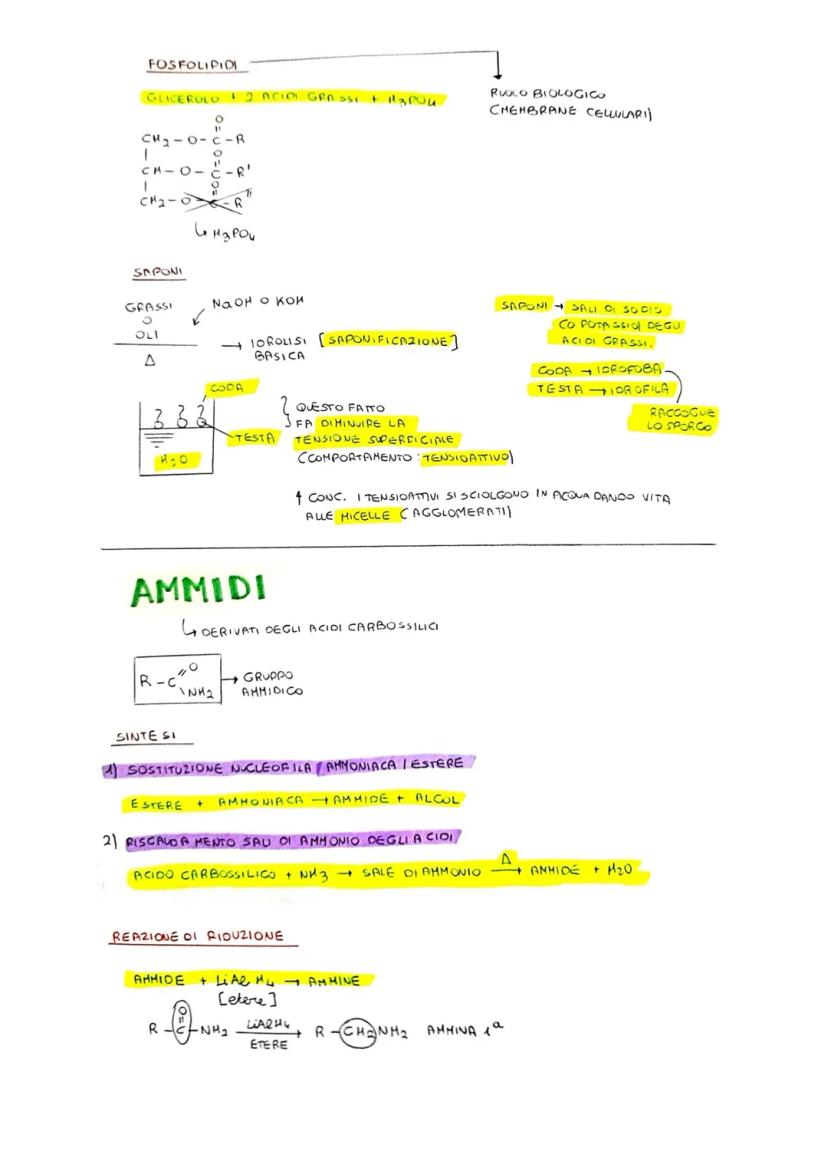 FOSFOLIPIDI
RUOLO BIOLOGICO
(MEMBRANE CELLULARI)
GLICEROLO + 2 ACIDI GRASSI + H3PO4
O
CH2 - O - C - R
O
CH - O - C - R'
O
CH2 - O - C - R"
↳ H3PO4
SAPONI
GRASSI
O
OLI
Δ
NaOH O KOH
→ IDROLISI [SAPONIFICAZIONE]
BASICA
SAPONI → SALI DI SODIO
(O POTASSIO) DEGLI
ACIDI GRASSI.
CODA → IDROFOBA
TESTA → IDROFILA
RACCOGLIE
LO SPORCO
CODA
TESTA
H2O
QUESTO FATTO
FA DIMINUIRE LA
TENSIONE SUPERFICIALE
(COMPORTAMENTO: TENSIOATTIVO)
↑ CONC. I TENSIOATTIVI SI SCIOLGONO IN ACQUA DANDO VITA
ALLE MICELLE (AGGLOMERATI)
AMMIDI
↳ DERIVATI DEGLI ACIDI CARBOSSILICI
O
R - C
NH2
→ GRUPPO
AMMIDICO
SINTESI
1) SOSTITUZIONE NUCLEOFILA (AMMONIACA / ESTERE
ESTERE + AMMONIACA → AMMIDE + ALCOL
2) RISCALDAMENTO SALI DI AMMONIO DEGLI ACIDI
ACIDO CARBOSSILICO + NH3 → SALE DI AMMONIO Δ→ AMMIDE + H2O
REAZIONE DI RIDUZIONE
AMMIDE + LiAlH4 → AMMINE
[etere]
O
R - C - NH2 LiAlH4 → R - CH2 NH2 AMMINA 1ª
ETERE